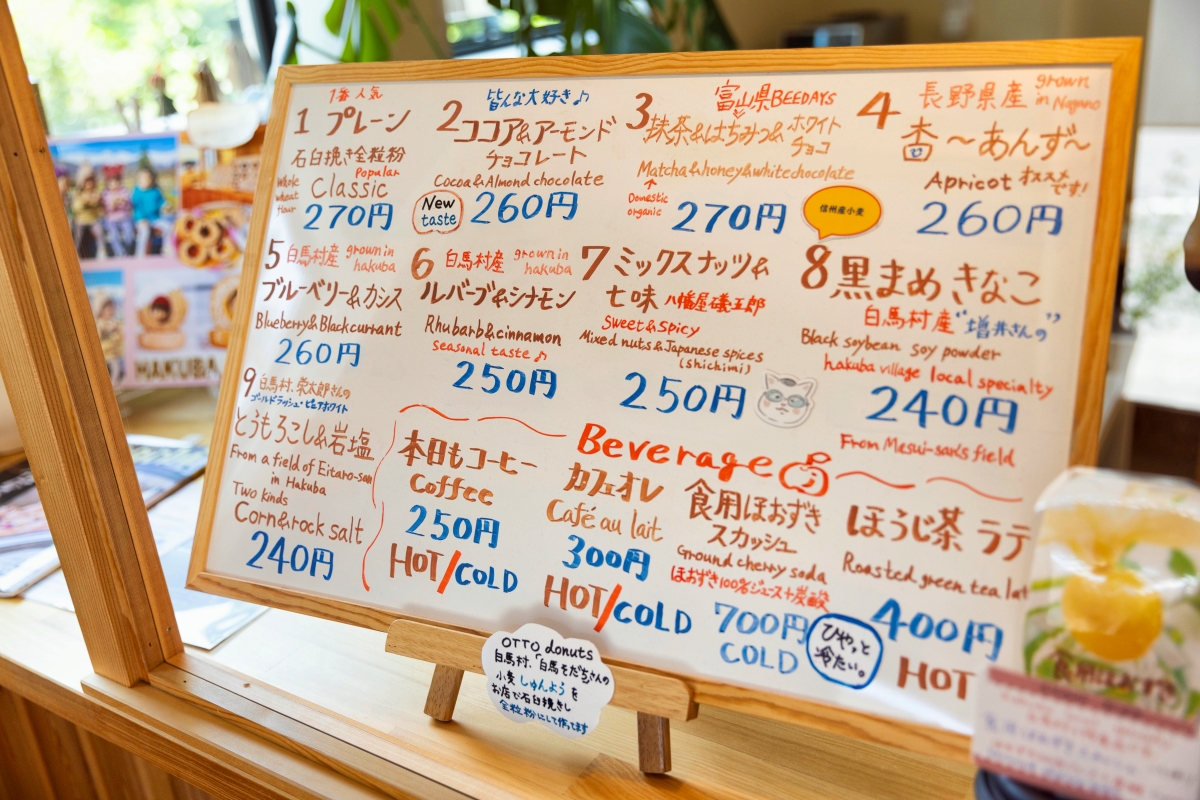 1番人気
1 プレーン
石臼挽き全粒粉
Popular
Whole wheat flour
Classic
270円
皆んな大好き♪
2 ココア&アーモンド
チョコレート
Cocoa&Almond chocolate
New taste
260円
富山県BEEDAYS
3 抹茶&はちみつ&ホワイト
チョコ
Matcha&honey&whitechocolate
↑
Domestic organic
270円
4 長野県産 grown in Nagano
杏〜あんず〜
Apricot オススメです!
信州産小麦
260円
5 白馬村産 grown in hakuba
ブルーベリー&カシス
Blueberry&Blackcurrant
260円
6 白馬村産 grown in hakuba
ルバーブ&シナモン
Rhubarb&cinnamon
seasonal taste♪
250円
7 ミックスナッツ&
七味 八幡屋礒五郎
Sweet&spicy
Mixed nuts&Japanese spices
(shichimi)
250円
8 黒まめきなこ
白馬村産"増井さんの"
Black soybean soy powder
hakuba village local specialty
240円
From Mesui-san's field
9 白馬村、栄太郎さんの
ゴールドラッシュ・ピュアホワイト
とうもろこし&岩塩
From a field of Eitaro-san
in Hakuba
Two kinds
Corn&rock salt
240円
Beverage
本日もコーヒー
Coffee
250円
HOT/COLD
カフェオレ
Café au lait
300円
HOT/COLD
食用ほおずき
スカッシュ
Ground cherry soda
ほおずき100%ジュース+炭酸
700円
COLD
ひやっと
冷たい。
ほうじ茶 ラテ
Roasted green tea lat
400円
HOT
OTTO donuts
白馬村、「白馬そだち」さんの
小麦 しゅんよう を
お店で石臼挽きし
全粒粉にして作ってます
HAKUBA